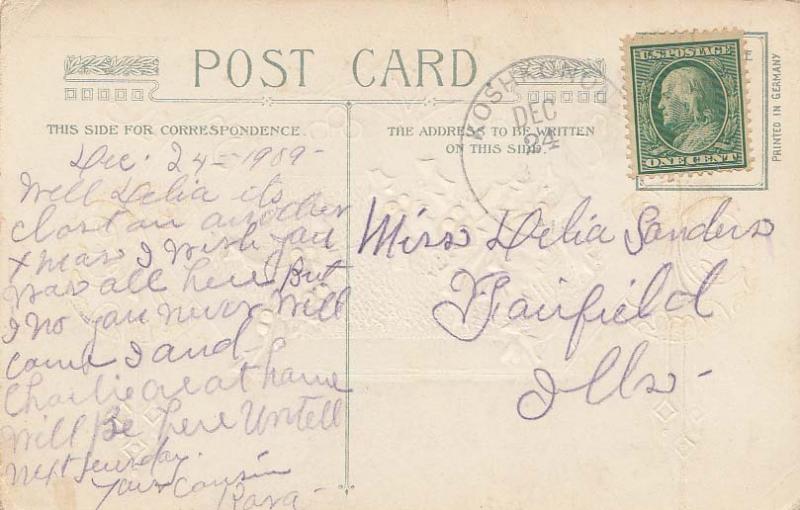 POST CARD
THIS SIDE FOR CORRESPONDENCE.
THE ADDRESS TO BE WRITTEN
ON THIS SIDE.
KOSHKONO
DEC
24
U.S. POSTAGE
ONE CENT
PRINTED IN GERMANY
Dec. 24-1909-
Well Delia its
clost on another
Xmas I wish you
was all here But
I no you never will
come I and
Charlie are at home
Will Be here Untell
next Sunday.
Your Cousin
Miss Delia Sanders
Fairfield
Ills-